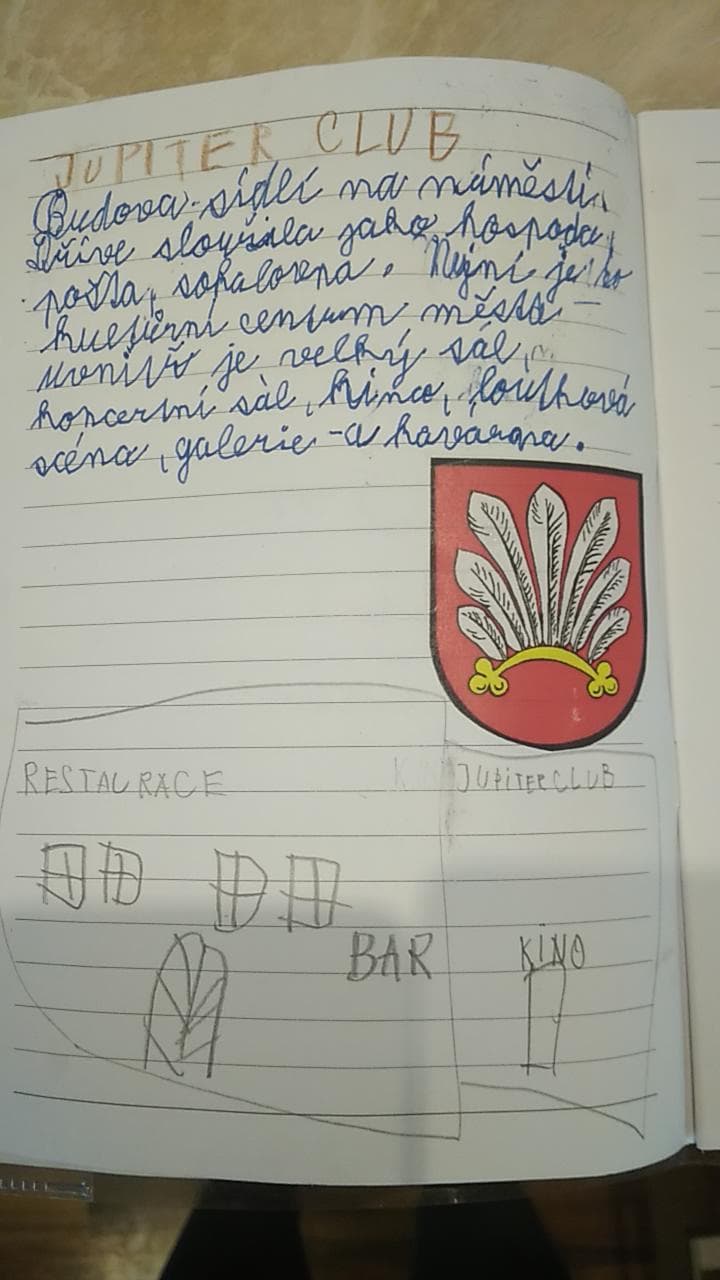 JUPITER CLUB
Budova sídlí na náměstí.
Dříve sloužila jako hospoda,
pošta, sokolovna. Nyní je to
kulturní centrum města –
uvnitř je velký sál,
koncertní sál, kino, loutková
scéna, galerie a kavárna.
RESTAURACE
JUPITER CLUB
BAR
KINO